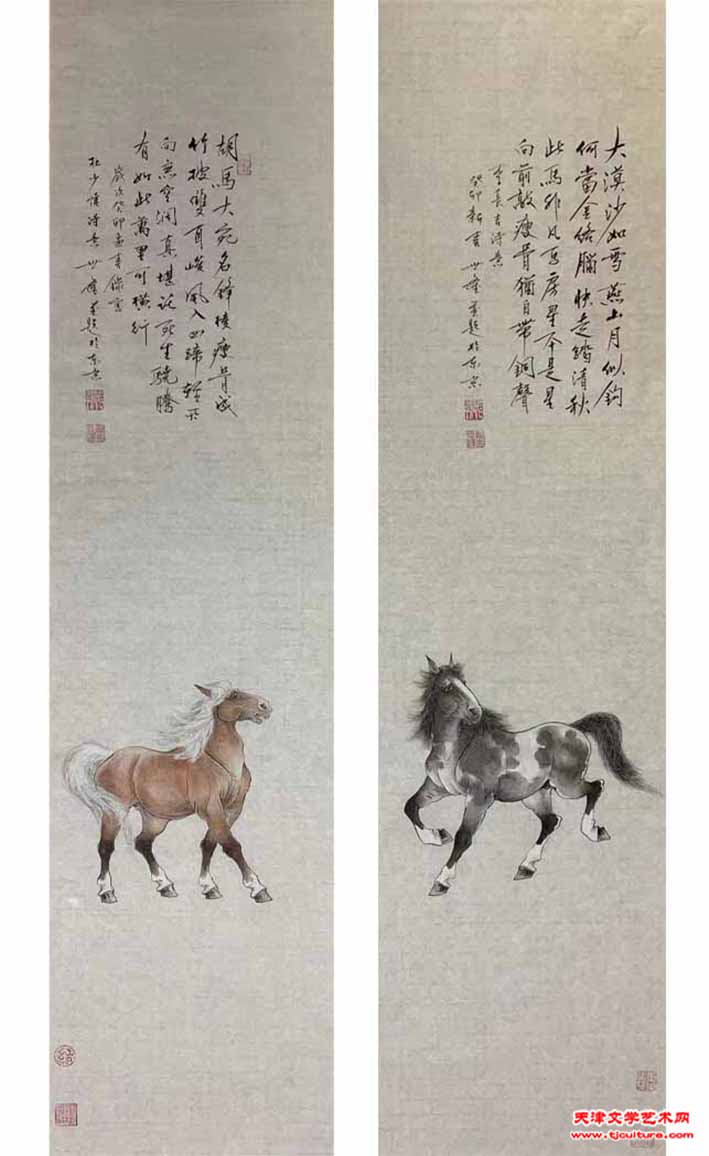 大漠沙如雪燕山月似鉤
何當金絡腦快走踏清秋
此馬非凡馬房星本是星
向前敲瘦骨猶自帶銅聲
李長吉詩意
癸卯新春 世 並題於東京
胡馬大宛名鋒棱瘦骨成
竹披雙耳峻風入四蹄輕所
向無空闊真堪託死生驍騰
有如此萬里可橫行
歲次癸卯孟春錄寫
杜少陵詩意 世 並題於東京
天津文学艺术网
www.tjculture.com